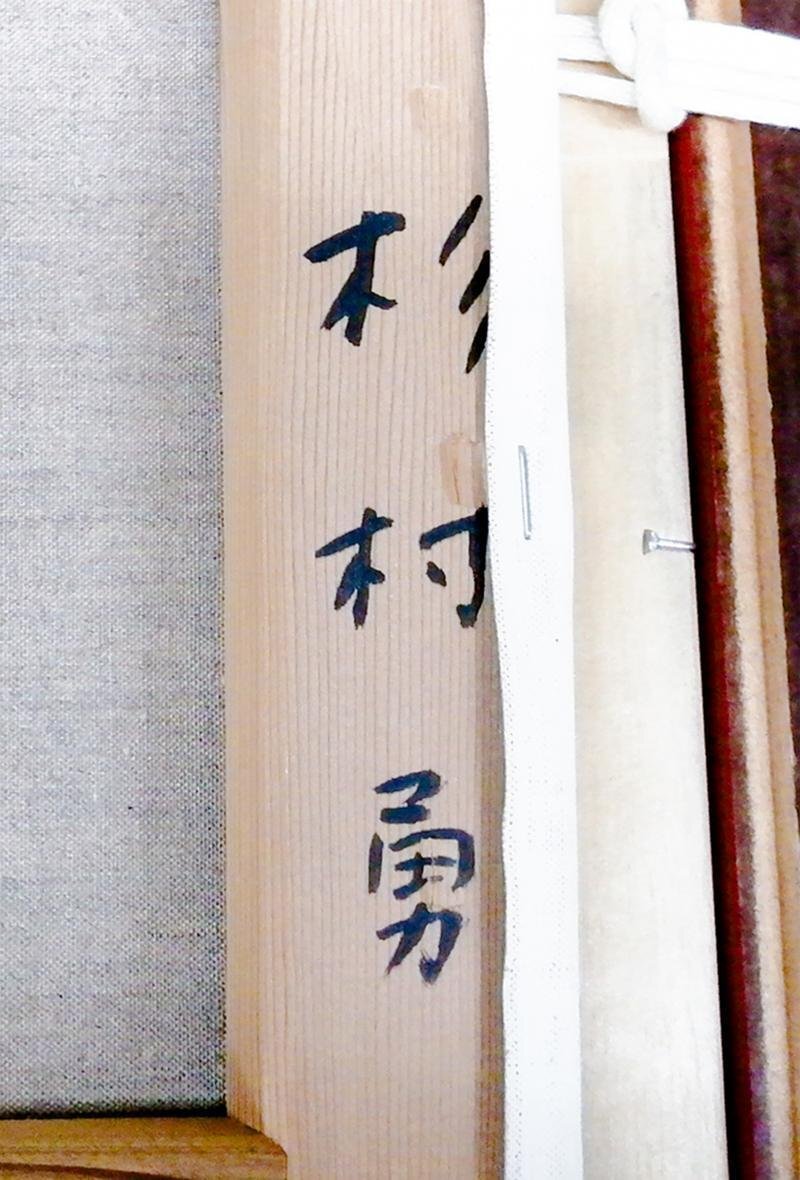 杉村勇